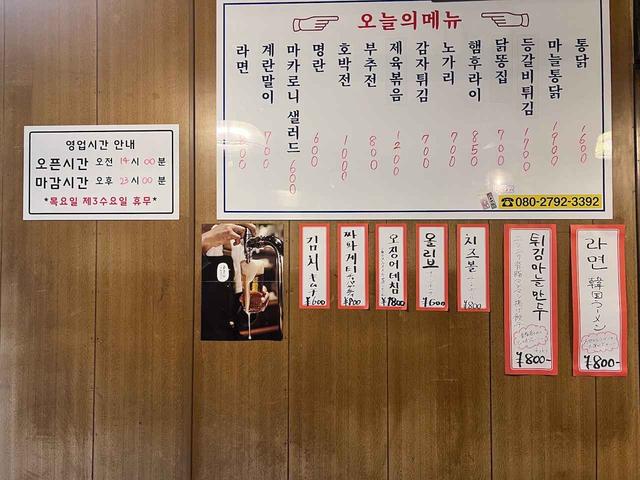 오늘의메뉴
통닭 1600
마늘통닭 1900
등갈비튀김 1700
닭똥집 700
햄후라이 850
노가리 700
감자튀김 700
제육볶음 1200
부추전 800
호박전 1000
명란 600
마카로니 샐러드 600
계란말이 700
라면
☎080-2792-3392
영업시간 안내
오픈시간 오전 14시 00분
마감시간 오후 23시 00분
*목요일 제3수요일 휴무*
김치 キムチ ¥600
짜파게티 ¥800
오징어데침 ¥1800
올리브 ¥600
치즈볼 ¥800
튀김마늘만두 ¥800-
라면 韓国ラーメン ¥800-